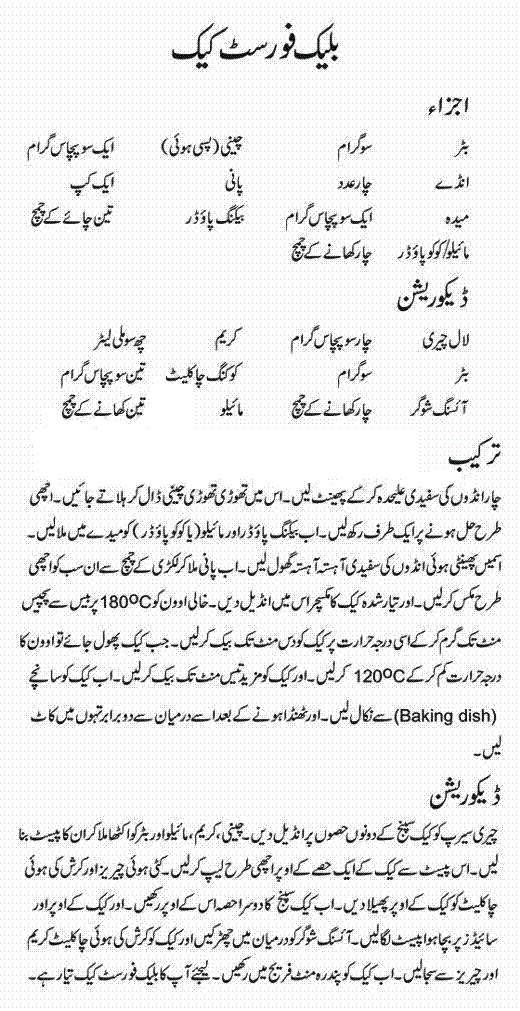 بلیک فورسٹ کیک
اجزاء
بٹر سو گرام چینی (پسی ہوئی) ایک سو پچاس گرام
انڈے چار عدد پانی ایک کپ
میدہ ایک سو پچاس گرام بیکنگ پاؤڈر تین چائے کے چمچ
مائیلو/کوکو پاؤڈر چار کھانے کے چمچ
ڈیکوریشن
لال چیری چار سو پچاس گرام کریم چھ سو ملی لیٹر
بٹر سو گرام کوکنگ چاکلیٹ تین سو پچاس گرام
آئسنگ شوگر چار کھانے کے چمچ مائیلو تین کھانے کے چمچ
ترکیب
چار انڈوں کی سفیدی علیحدہ کر کے پھینٹ لیں۔ اس میں تھوڑی تھوڑی چینی ڈال کر ہلاتے جائیں۔ اچھی
طرح حل ہونے پر ایک طرف رکھ لیں۔ اب بیکنگ پاؤڈر اور مائیلو (یا کوکو پاؤڈر) کو میدے میں ملا لیں۔
اسمیں پھینٹی ہوئی انڈوں کی سفیدی آہستہ آہستہ گھول لیں۔ اب پانی ملا کر لکڑی کے چمچ سے ان سب کو اچھی
طرح مکس کر لیں۔ اور تیار شدہ کیک کا مکسچر اس میں انڈیل دیں۔ خالی اوون کو 180ºC پر بیس سے پچیس
منٹ تک گرم کر کے اسی درجہ حرارت پر کیک کو دس منٹ تک بیک کر لیں۔ جب کیک پھول جائے تو اوون کا
درجہ حرارت کم کر کے 120ºC کر لیں۔ اور کیک کو مزید تیس منٹ تک بیک کر لیں۔ اب کیک کو سانچے
(Baking dish) سے نکال لیں۔ اور ٹھنڈا ہونے کے بعد اسے درمیان سے دو برابر تہوں میں کاٹ
لیں۔
ڈیکوریشن
چیری سیرپ کو کیک سپنج کے دونوں حصوں پر انڈیل دیں۔ چینی، کریم، مائیلو اور بٹر کو اکٹھا ملا کر ان کا پیسٹ بنا
لیں۔ اس پیسٹ سے کیک کے ایک حصے کے اوپر اچھی طرح لیپ کر لیں۔ کٹی ہوئی چیریز اور کرش کی ہوئی
چاکلیٹ کو کیک کے اوپر پھیلا دیں۔ اب کیک سپنج کا دوسرا حصہ اس کے اوپر رکھیں۔ اور کیک کے اوپر اور
سائیڈز پر بچا ہوا پیسٹ لگا لیں۔ آئسنگ شوگر کو درمیان میں چھڑکیں اور کیک کو کرش کی ہوئی چاکلیٹ کریم
اور چیریز سے سجا لیں۔ اب کیک کو پندرہ منٹ فریج میں رکھیں۔ لیجئے آپ کا بلیک فورسٹ کیک تیار ہے۔